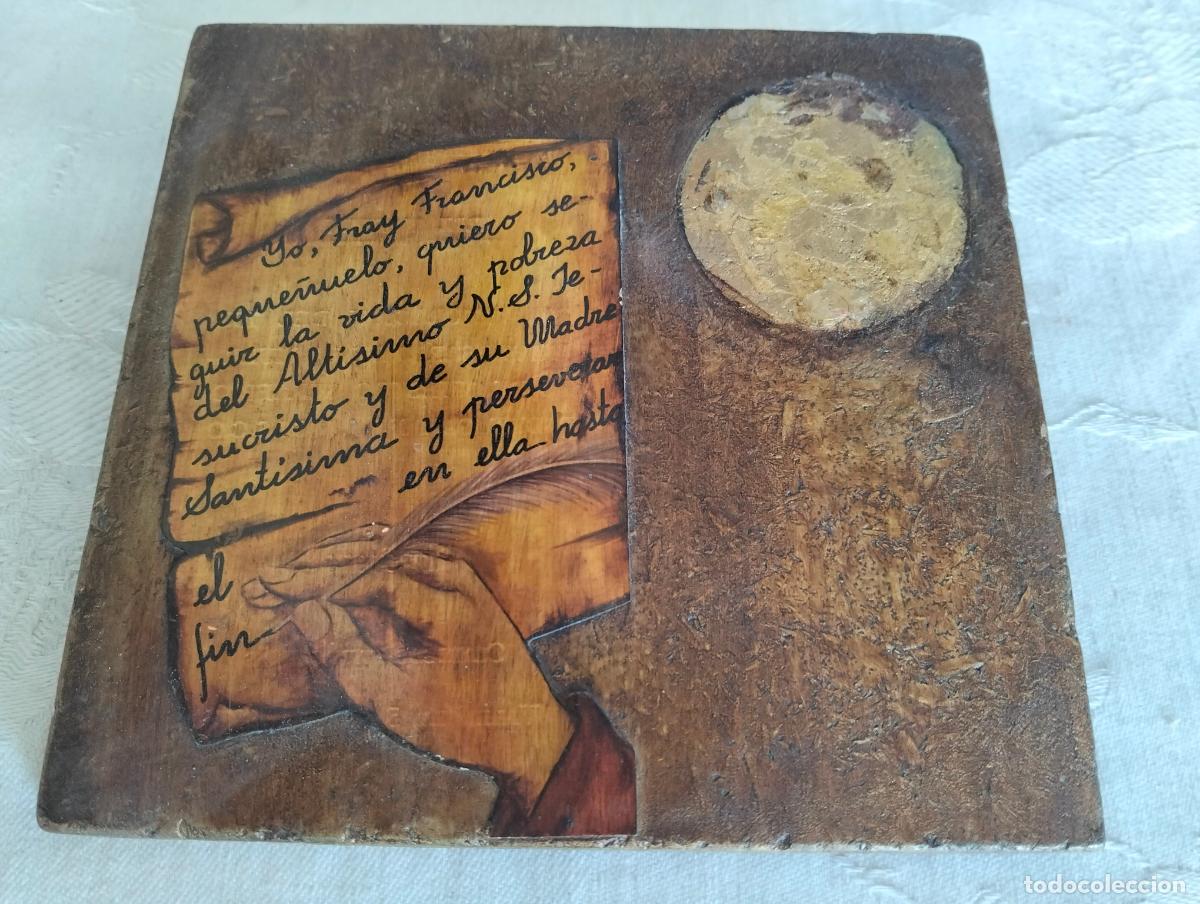 Yo, Fray Francisco,
pequeñuelo, quiero se-
guir la vida y pobreza
del Altísimo N. S. Je-
sucristo y de su Madre
Santísima y perseverar
en ella hasta
el
fin
todocoleccion